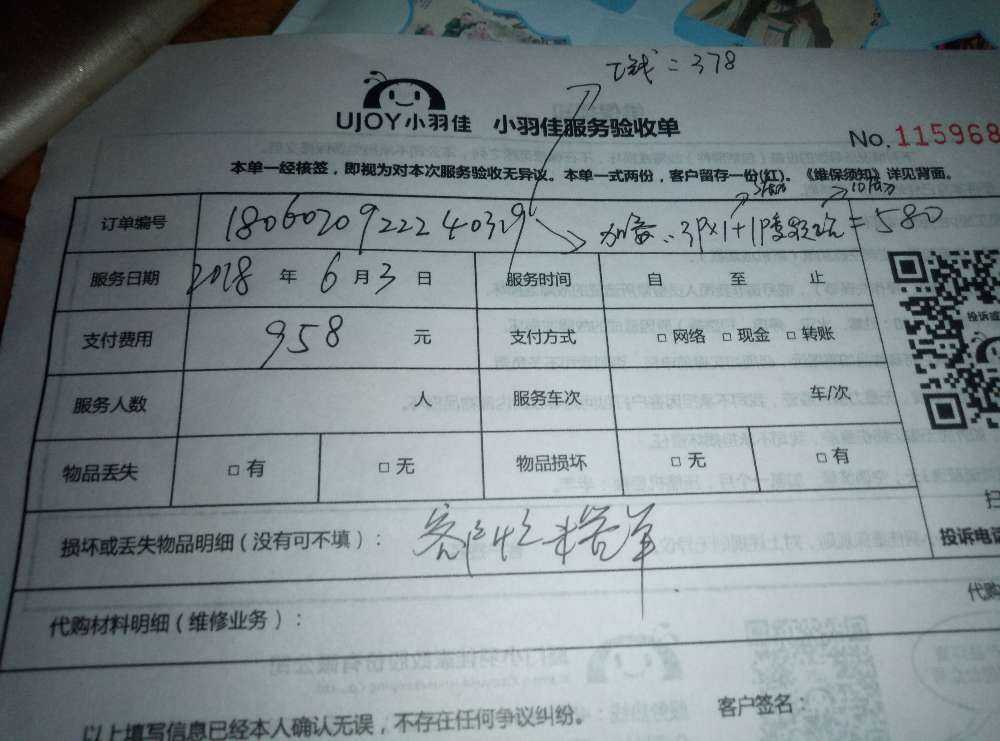 工钱 = 378
UJOY小羽佳 小羽佳服务验收单
No. 115968
本单一经核签，即视为对本次服务验收无异议。本单一式两份，客户留存一份(红)。《维保须知》详见背面。
订单编号 18060209222403 加氟：3P×1+1P = 580
服务日期 2018 年 6 月 3 日 服务时间 自 至 止
支付费用 958 元 支付方式 □ 网络 □ 现金 □ 转账
投诉或
服务人数 人 服务车次 车/次
物品丢失 □ 有 □ 无 物品损坏 □ 无 □ 有
损坏或丢失物品明细（没有可不填）： 客户忙未签单
投诉电话
代购材料明细（维修业务）： 代购
以上填写信息已经本人确认无误，不存在任何争议纠纷。 客户签名：